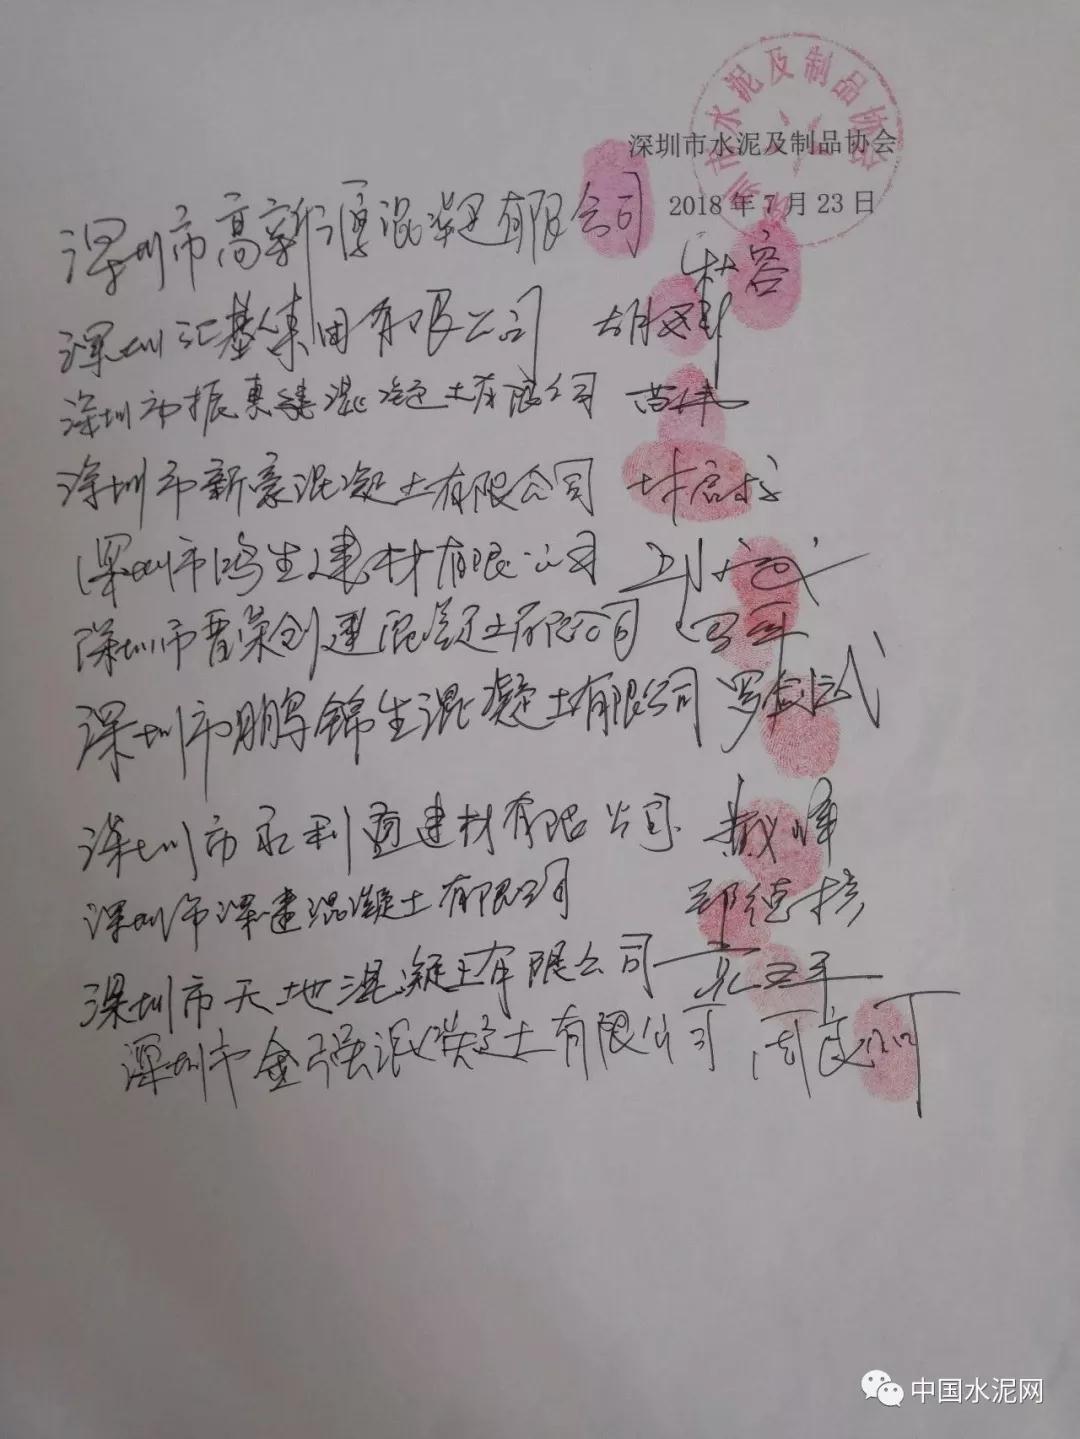 深圳市水泥及制品协会
2018年7月23日
深圳市高新源混凝土有限公司
林容
深圳汇基集团有限公司 胡
深圳市振惠建混凝土有限公司 苗伟
深圳市新豪混凝土有限公司
深圳市鸿生建材有限公司
深圳市晋荣创建混凝土有限公司
深圳市鹏锦生混凝土有限公司 罗剑武
深圳市永利通建材有限公司 戴峰
深圳市深建混凝土有限公司 郑德核
深圳市天地混凝土有限公司
深圳市金强混凝土有限公司 周
中国水泥网